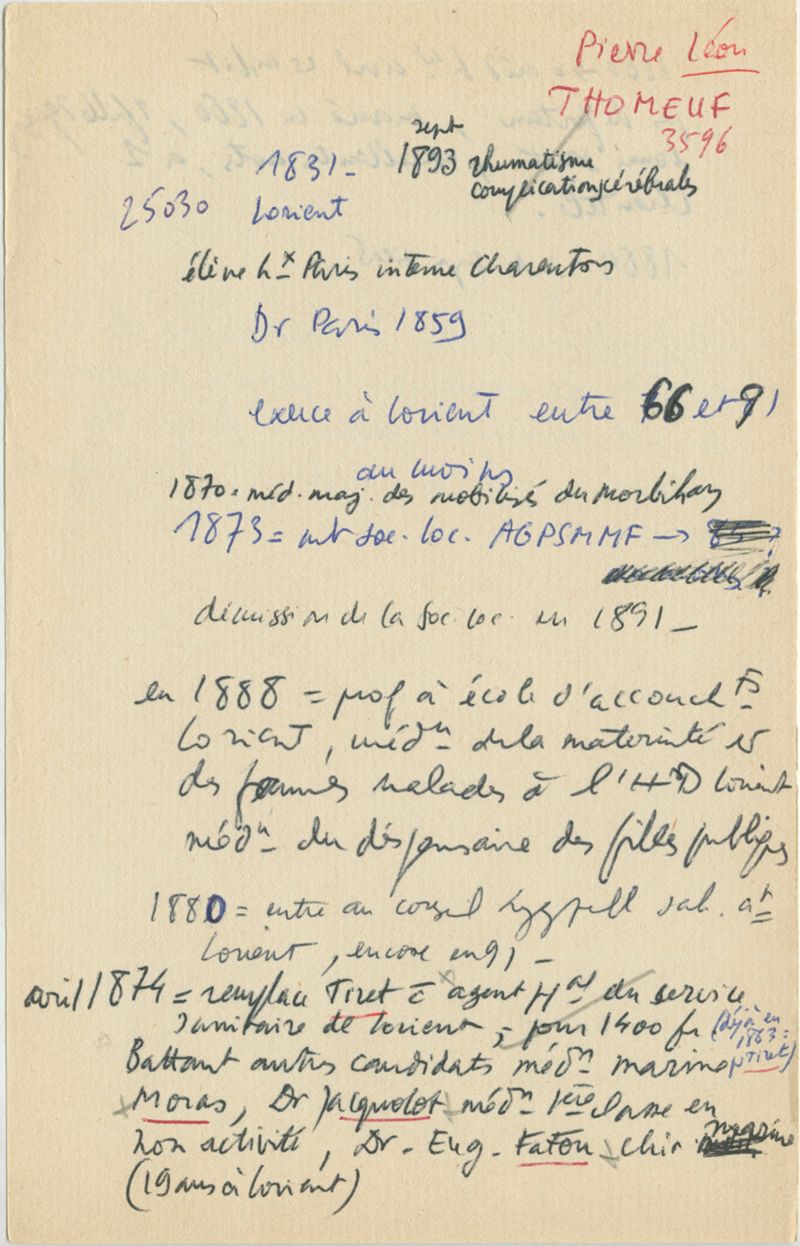 Pierre Léon
THOMEUF
3596
sept
1831 - 1893 rhumatisme
complications cérébrales
25030 Lorient
élève hx Paris interne Charenton
Dr Paris 1859
exerce à Lorient entre 66 et 91
au moins
1870 = méd. maj. des mobilisés du Morbihan
1873 = mb soc. loc. AGPSMMF →
démission de la soc. loc. en 1891 -
en 1888 = prof à école d'accoucht
Lorient, médn de la maternité et
des femmes malades à l'H D Lorient
médn du dispensaire des filles publiques
1880 = entre au conseil hyg sal. at
Lorient, encore en 91 -
avril 1874 = remplace Tiret c agent Hal du service
sanitaire de Lorient, = pour 1400 fr (déjà en
1863 =
Tiret)
Battant autres candidats médn marine
Moras, Dr Jacquolot médn 1ère classe en
non activité, Dr - Eug. Faton chir. marine
(19 ans à Lorient)